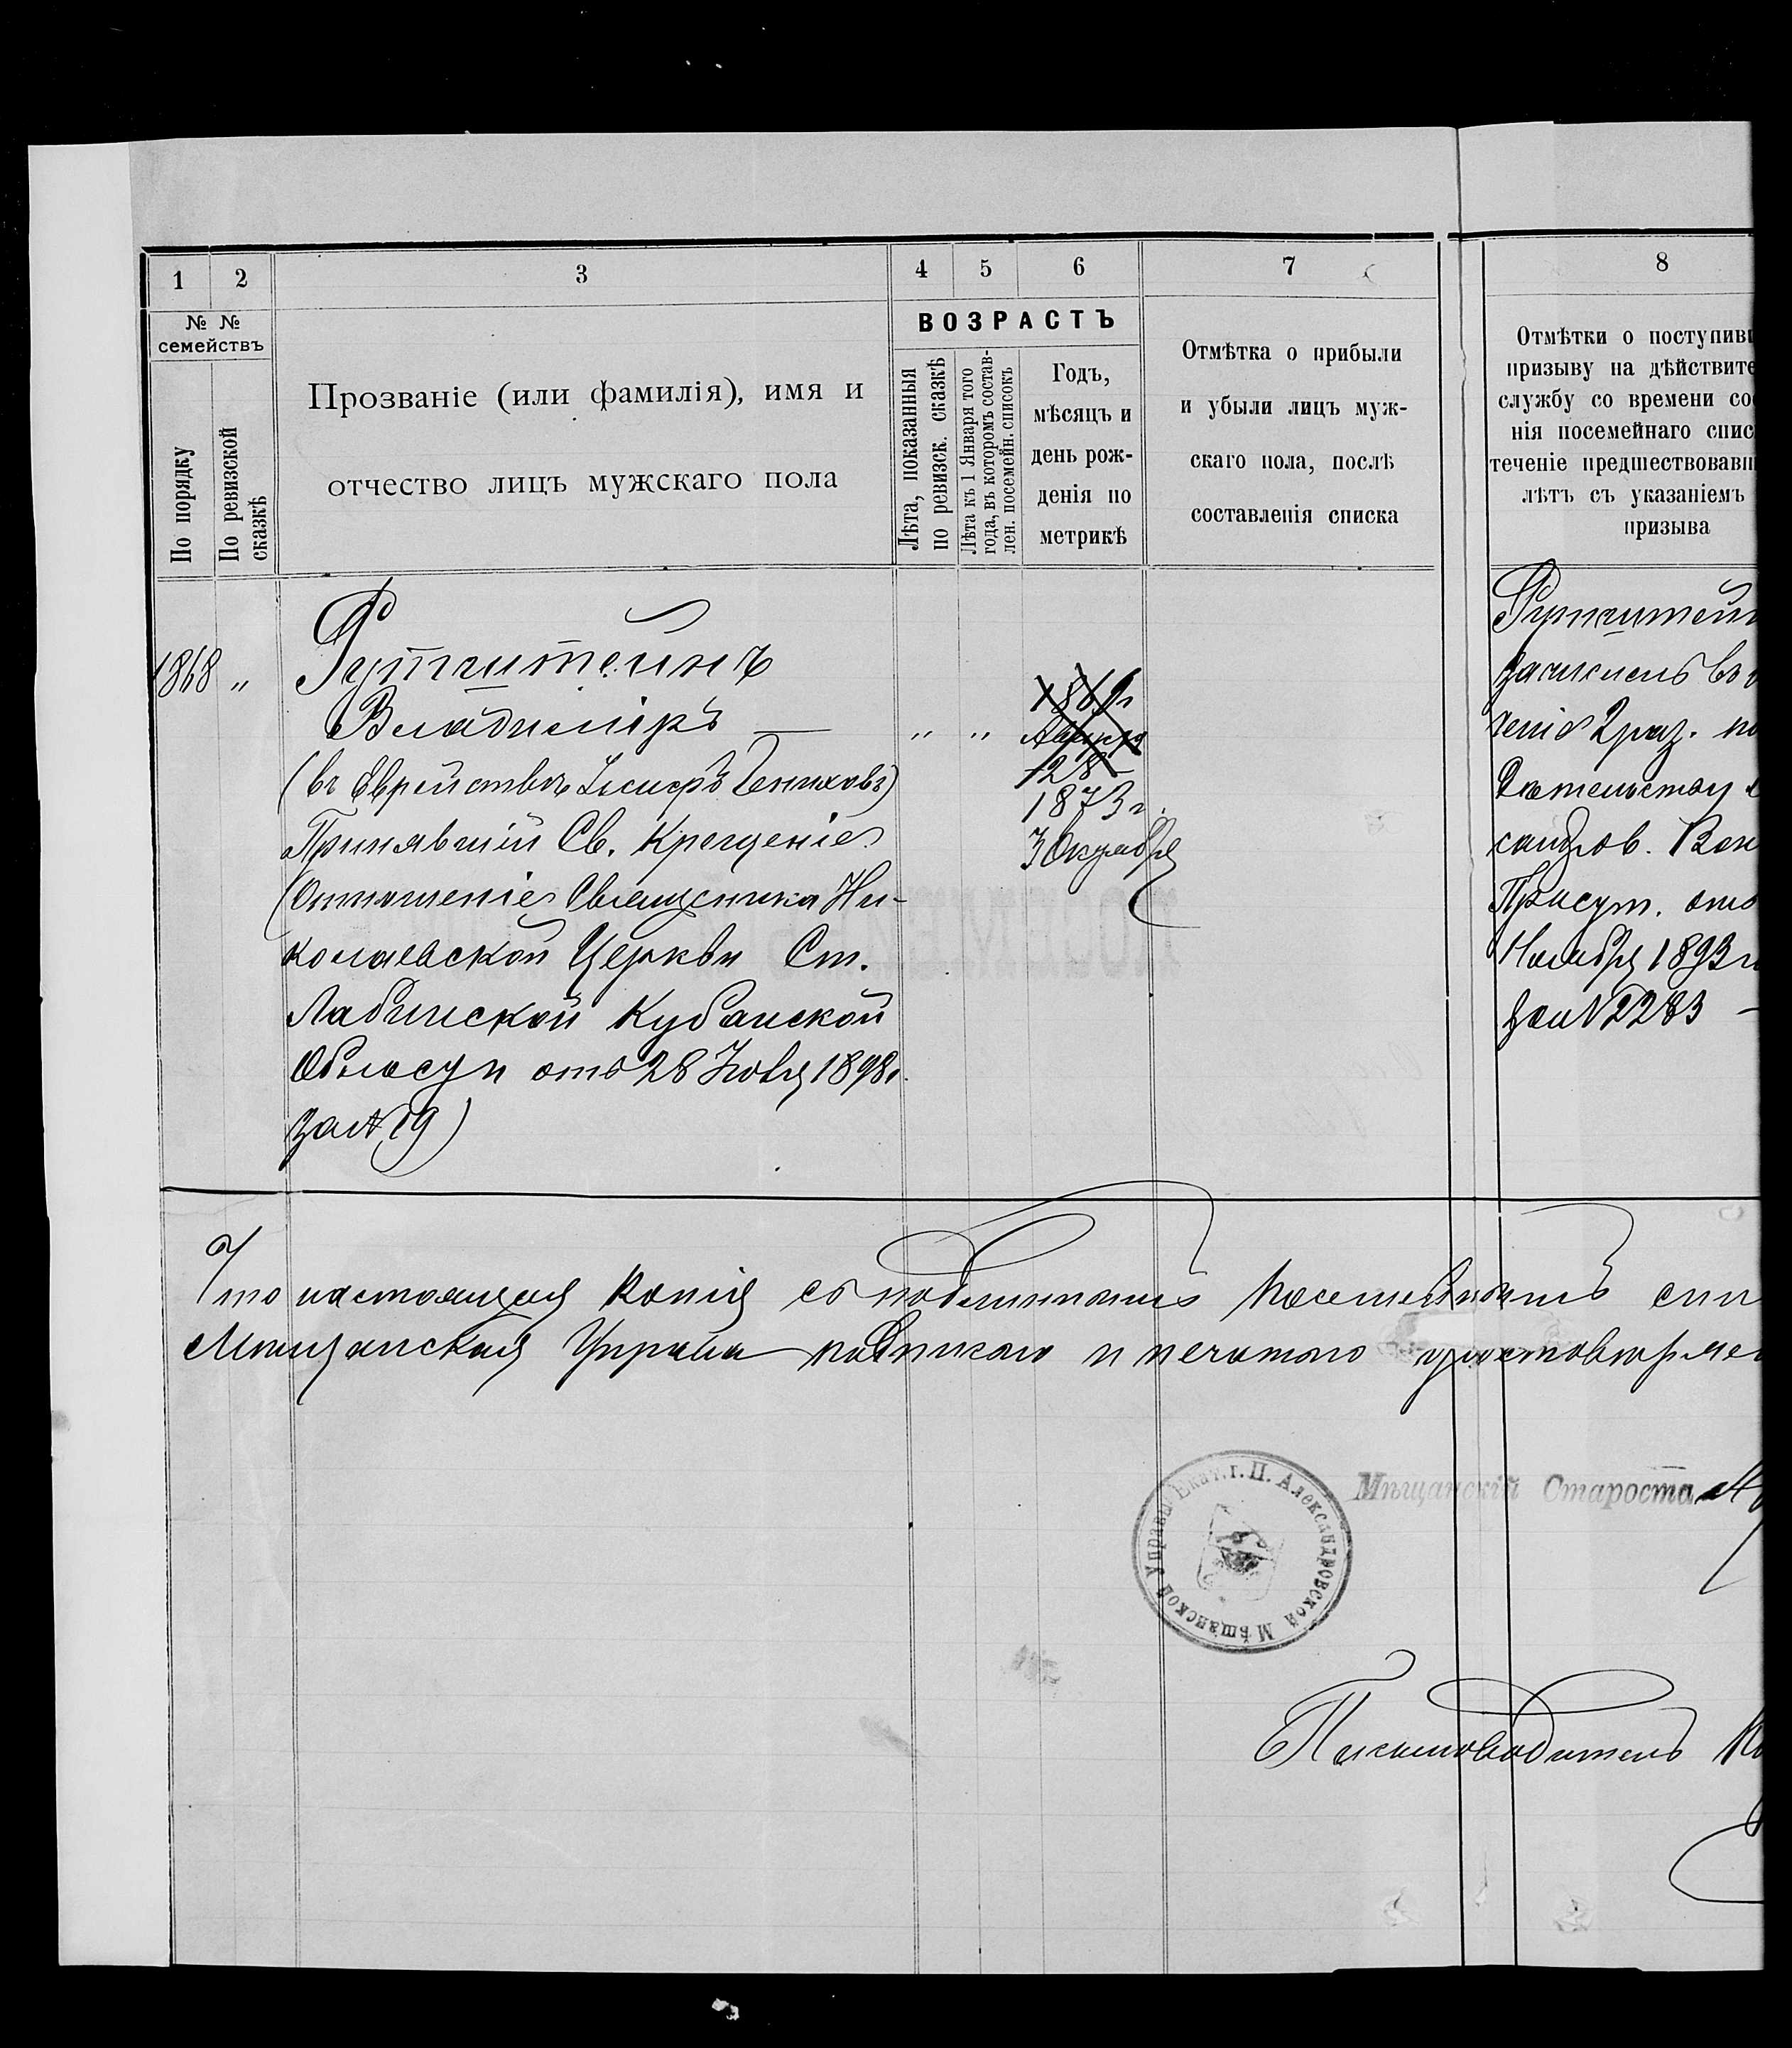 1
2
3
4
5
6
7
8
№ №
семействъ
По порядку
По ревизской
сказкѣ
Прозваніе (или фамилія), имя и
отчество лицъ мужскаго пола
ВОЗРАСТЪ
Лѣта, показанныя
по ревизск. сказкѣ
Лѣта къ 1 Января того
года, въ которомъ состав-
лен. посемейн. списокъ
Годъ,
мѣсяцъ и
день рож-
денія по
метрикѣ
Отмѣтка о прибыли
и убыли лицъ муж-
скаго пола, послѣ
составленія списка
Отмѣтки о поступивш
призыву на дѣйствите
службу со времени со
нія посемейнаго спис
теченіе предшествовавш
лѣтъ съ указаніемъ
призыва
1868 „
Гутштейнъ
Владиміръ —
(въ Еврействѣ
Принявшій Св. Крещеніе
(Отношеніе Священника Ни-
колаевской Церкви Ст.
Лабинской Кубанской
Области отъ 28 1898г.
за № 19)
„ „
1869г
28
1873г.
3 Октября
Гутштейн
зачисленъ въ о
ченіе 2 раз. по
детельству
сандров. Воин
Присут. отъ
Ноября 1893г
за № 2283 —
Что настоящая копія съ подлиннымъ посемейнымъ спи
Мѣщанская Управа подписью и печатью удостовѣряе
Мѣщанскій Староста
Екат. г. П. Александровской Мѣщанской Управы
Письмоводитель